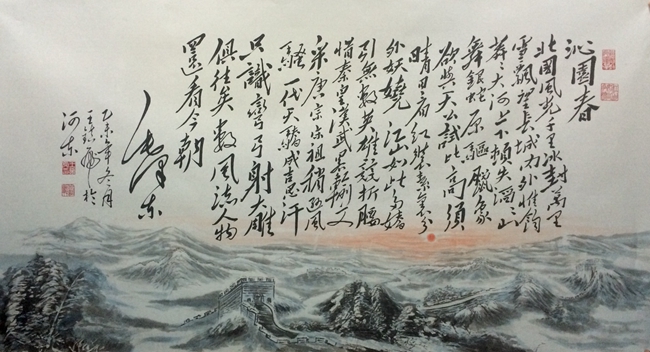 沁園春
北國風光千里冰封萬里
雪飄望長城内外惟餘
莽々大河上下頓失滔々山
舞銀蛇原驅蠟象
欲與天公試比高須
晴日看紅裝素裹分
外妖嬈江山如此多嬌
引無數英雄競折腰
惜秦皇漢武略輸文
采唐宗宋祖稍遜風
騷一代天驕成吉思汗
只識彎弓射大雕
俱往矣數風流人物
還看今朝
毛澤东
乙未年冬月
王於
河东